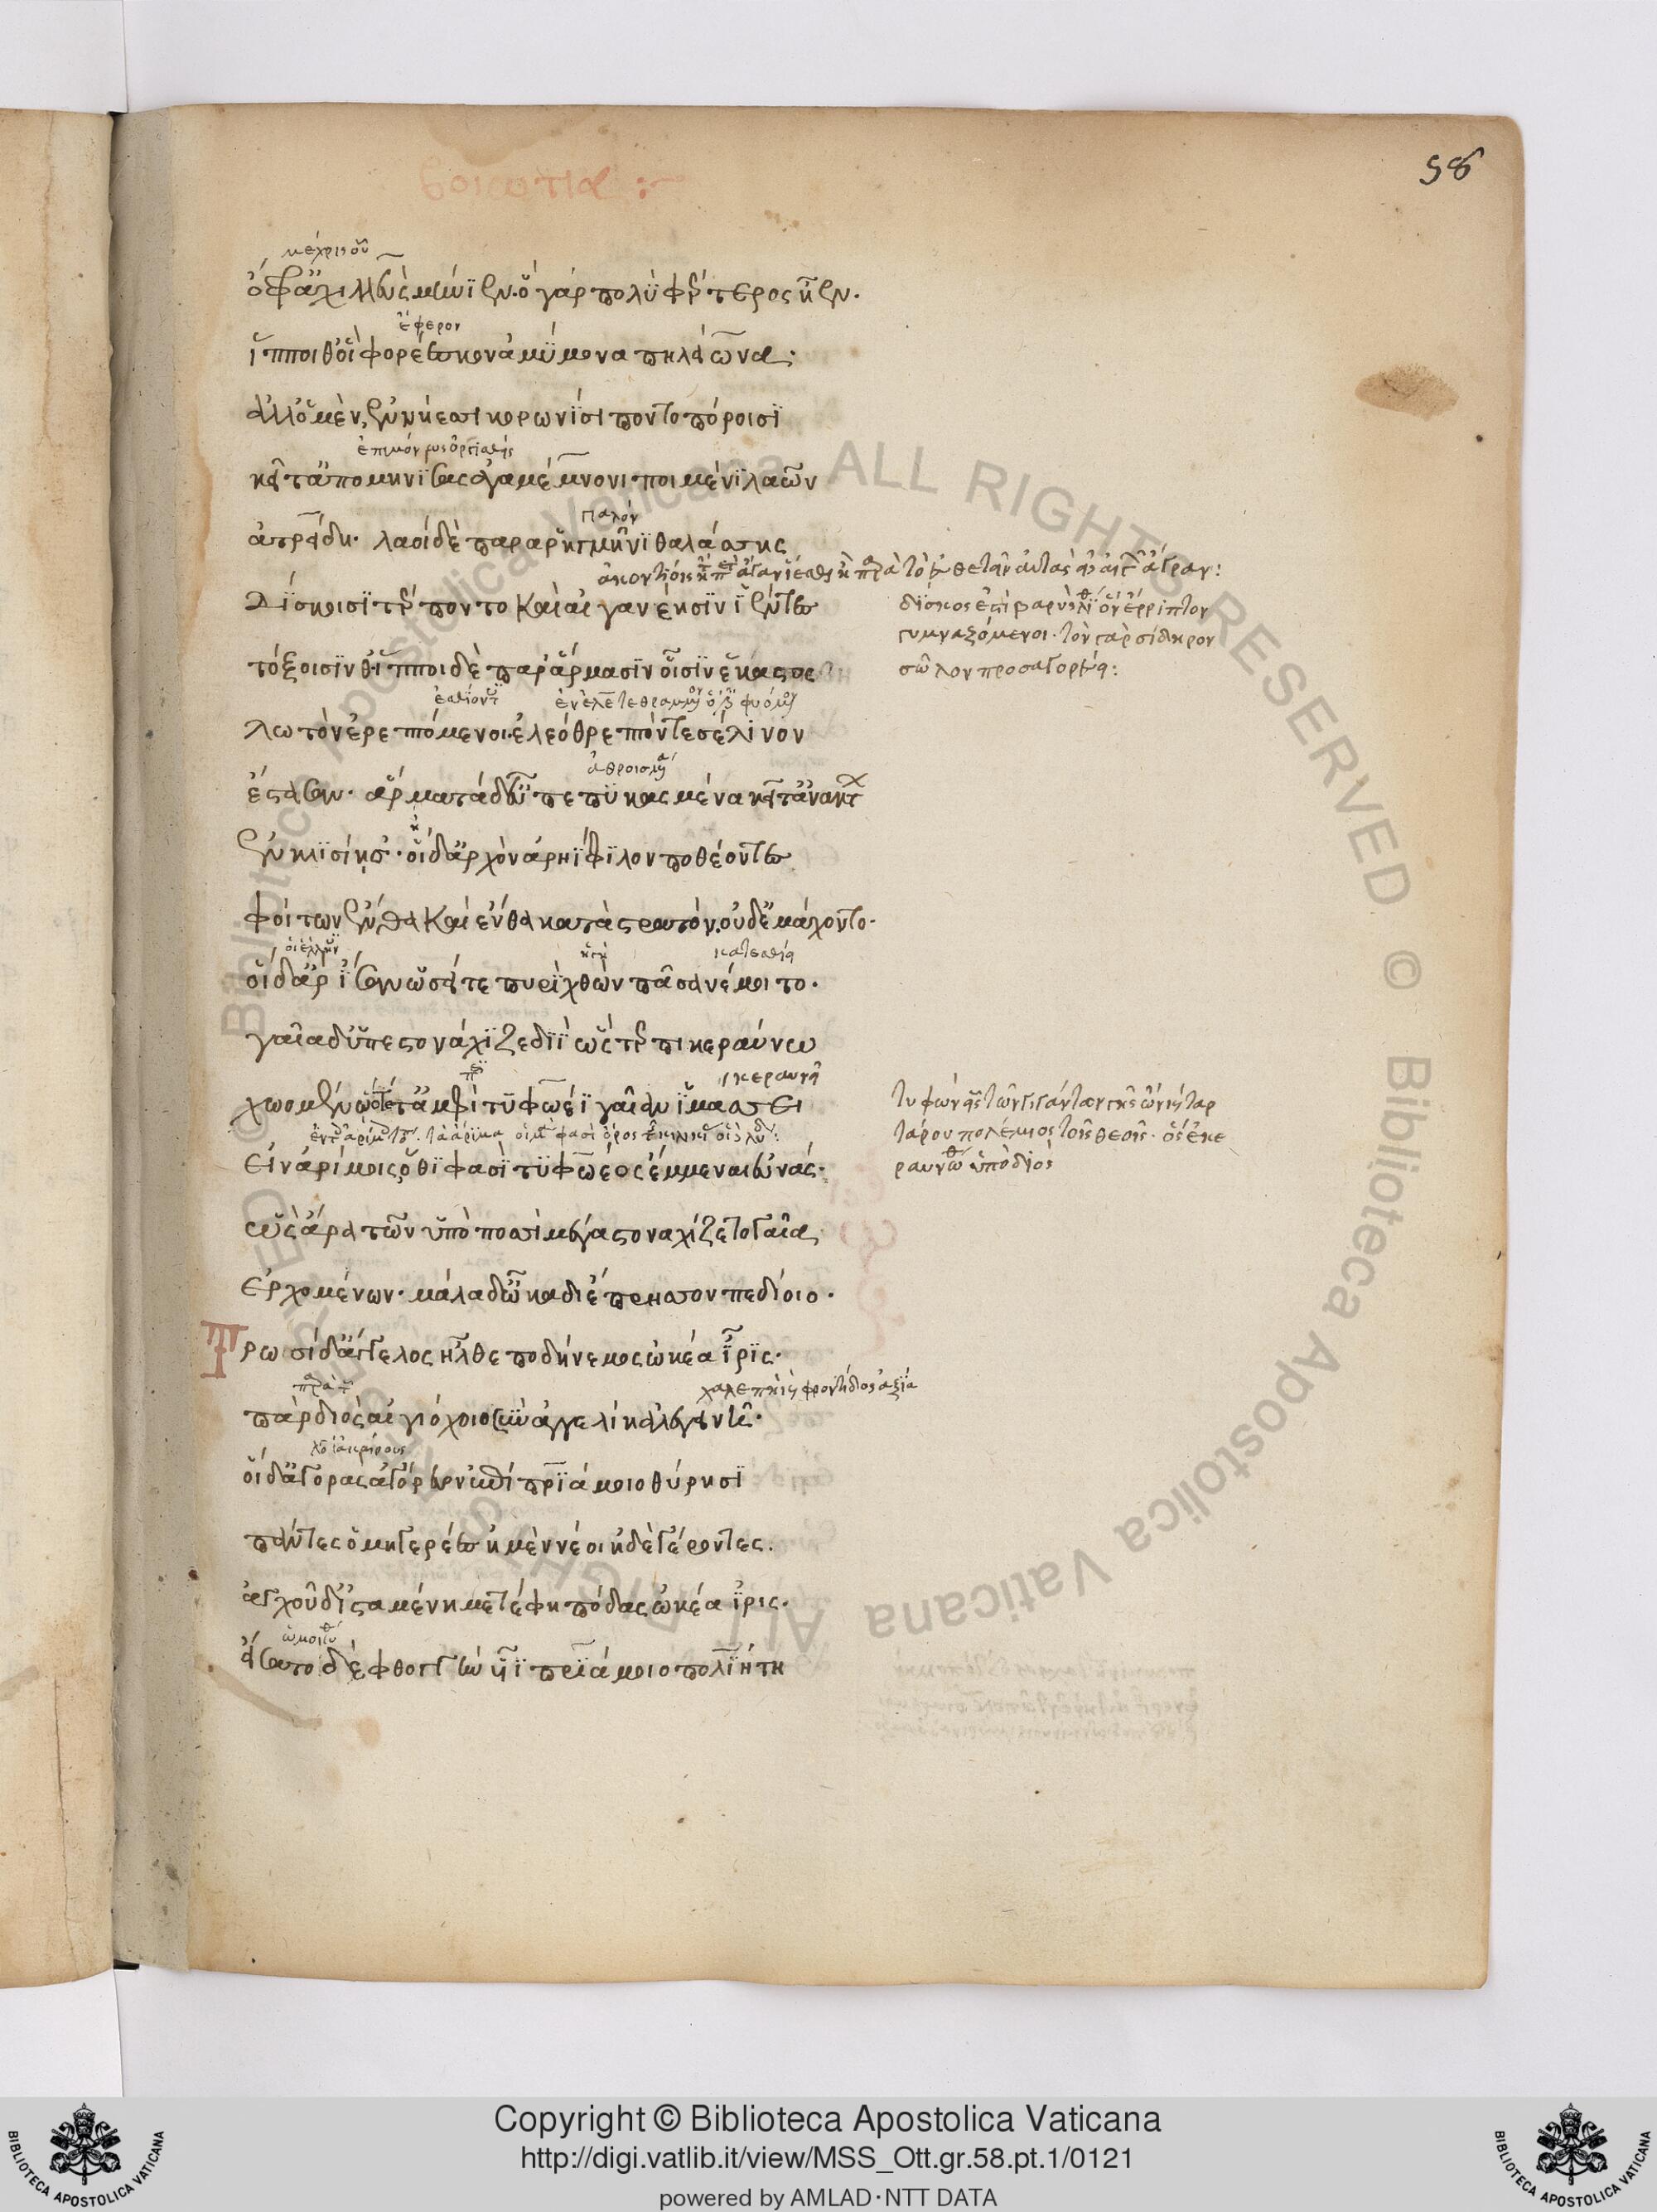 βοιωτια :~
58
μέχρις οὗ
ὄφρ' ἀχιλλεὺς μήνιεν. ὁ γὰρ πολὺ φέρτερος ἦεν.
ἔφερον
ἵπποι θ' οἳ φορέεσκον ἀμύμονα πηλείωνα·
ἀλλ' ὁ μὲν ἐν νήεσσι κορωνίσι ποντοπόροισι
κεῖτ' ἀπομηνίσας ἀγαμέμνονι ποιμένι λαῶν
ἀτρείδη· λαοὶ δὲ παρὰ ῥηγμῖνι θαλάσσης
δίσκοισι τέρποντο καὶ αἰγανέησιν ἱέντες
δίσκος ἐστὶ βαρὺς λίθος ὃν ἔρριπτον
γυμναζόμενοι. τὸν γὰρ σίδηρον
τόξοισιν θ' ἵπποι δὲ παρ' ἅρμασιν οἷσιν ἕκαστος
σῶλον προσαγορεύει:
λωτὸν ἐρεπτόμενοι ἐλεόθρεπτόν τε σέλινον
ἕστασαν. ἅρματα δ' εὖ πεπυκασμένα κεῖτο ἀνάκτων
ἐν κλισίης. οἱ δ' ἀρχὸν ἀρηΐφιλον ποθέοντες
φοίτων ἔνθα καὶ ἔνθα κατὰ στρατόν. οὐδ' ἐμάχοντο.
οἱ ἕλληνες
οἱ δ' ἄρ' ἴσαν ὡσεί τε πυρὶ χθὼν πᾶσα νέμοιτο.
γαῖα δ' ὑπεστονάχιζε διὶ ὣς τερπικεραύνω
χωομένω ὅτε τ' ἀμφὶ τυφωέϊ γαῖαν ἱμάσσει
τυφὼν εἷς τῶν γιγάντων γῆς ὢν καὶ ταρ
τάρου πολέμιος τοῖς θεοῖς. ὃς ἐκε
εἰν ἀρίμοις ὅθι φασὶ τυφωέος ἔμμεναι εὐνάς·
ραυνώθη ὑπὸ διός
ὣς ἄρα τῶν ὑπὸ ποσσὶ μέγα στοναχίζετο γαῖα
ἐρχομένων. μάλα δ' ὦκα διέπρησσον πεδίοιο.
Τρωσὶ δ' ἄγγελος ἦλθε ποδήνεμος ὠκέα ἶρις.
πὰρ διὸς αἰγιόχοιο σὺν ἀγγελίη ἀλεγεινῆ.
οἱ δ' ἀγορὰς ἀγόρευον ἐπὶ πριάμοιο θύρησι
πάντες ὁμηγερέες ἠμὲν νέοι ἠδὲ γέροντες.
ἀγχοῦ δ' ἱσταμένη μετέφη πόδας ὠκέα ἶρις.
εἴσατο δὲ φθογγὴν υἷϊ πριάμοιο πολίτη
Copyright © Biblioteca Apostolica Vaticana
http://digi.vatlib.it/view/MSS_Ott.gr.58.pt.1/0121
powered by AMLAD·NTT DATA
BIBLIOTECA APOSTOLICA VATICANA
BIBLIOTECA APOSTOLICA VATICANA
© Biblioteca Apostolica Vaticana ALL RIGHTS RESERVED © Biblioteca Apostolica Vaticana ALL RIGHTS RESERVED